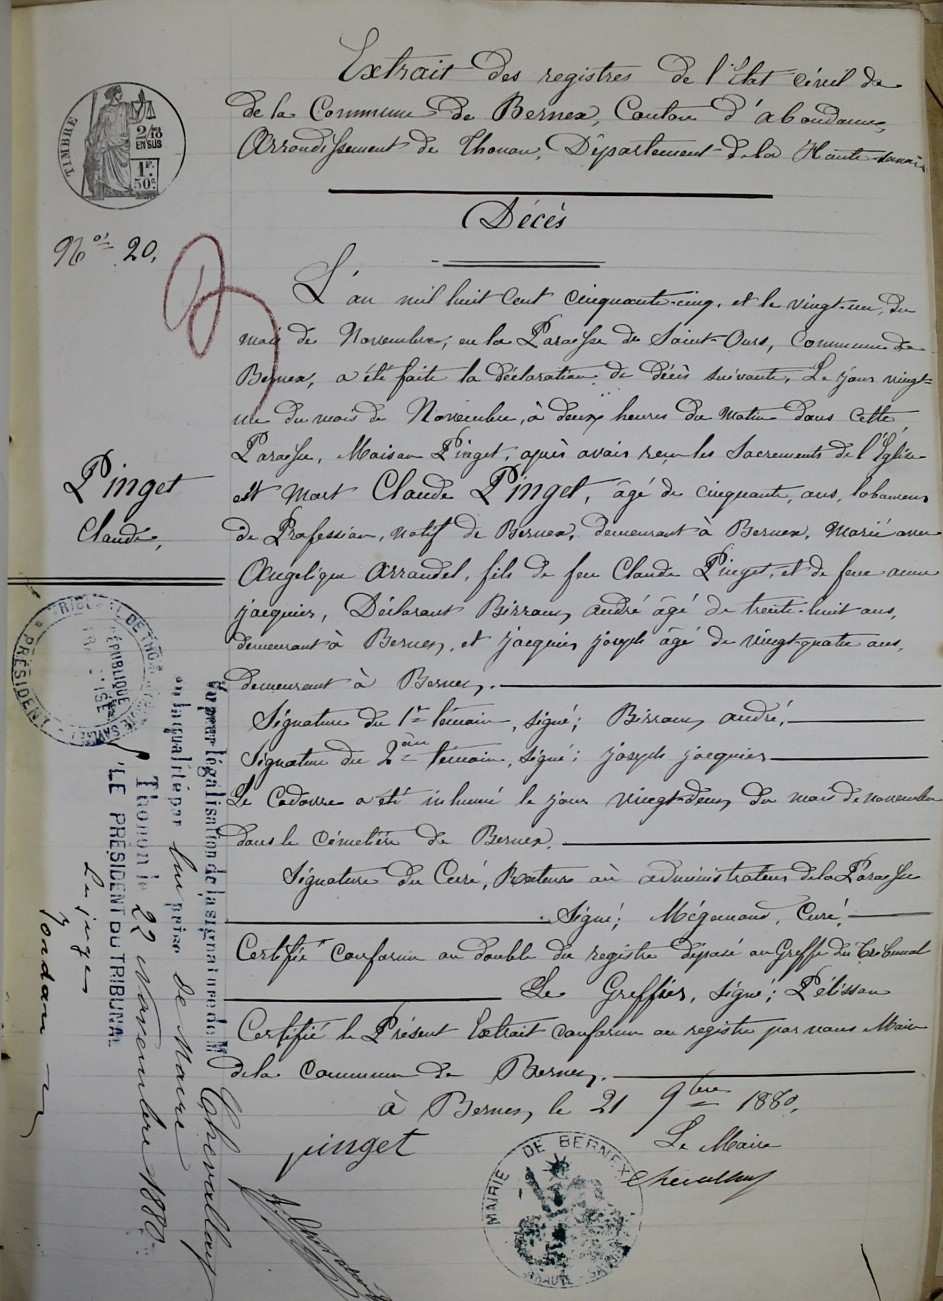 Extrait des registres de l'Etat civil de
de la Commune de Bernex, Canton d'abondance,
Arrondissement de Thonon, Département de la Haute-Savoie
TIMBRE
2/10
EN SUS
1F.
50c.
Décès
Nos 20.
L'an mil huit cent cinquante-cinq, et le vingt-un, du
mois de Novembre, en la Paroisse de Saint-Ours, Commune de
Bernex, a été faite la déclaration de décès suivante, Le jour vingt-
un du mois de Novembre, à deux heures du matin dans cette
Paroisse, Maison Pinget, après avoir reçu les Sacrements de l'Eglise
est mort Claude Pinget, âgé de cinquante ans, laboureur
de Profession, natif de Bernex, demeurant à Bernex, marié avec
Angélique Arrandel, fils de feu Claude Pinget, et de feue anne
jacquier, Déclarant Birraux andré âgé de trente-huit ans,
demeurant à Bernex, et jacquier joseph âgé de vingt-quatre ans,
demeurant à Bernex.
Pinget
Claude,
Signature du 1er témoin, signé; Birraux andré,
Signature du 2ème témoin, signé; joseph jacquier
Le Cadavre a été inhumé le jour vingt-deux du mois de novembre
dans le cimetière de Bernex.
Signature du Curé, Recteur ou administrateur de la Paroisse
Signé; Mégemond, Curé,
Certifié conforme au double du registre déposé au Greffe du Tribunal
Le Greffier, signé; Pélissan
Certifié le Présent Extrait conforme au registre par nous Maire
de la commune de Bernex.
à Bernex, le 21 9bre 1880.
pinget
Le Maire
Chevallay
MAIRIE DE BERNEX
HAUTE-SAVOIE
TRIBUNAL DE THONON
HAUTE SAVOIE
RÉPUBLIQUE
PRÉSIDENT
Vu pour légalisation de la signature de M Chevallay
en sa qualité par lui prise de Maire
Thonon le 22 Novembre 1880.
LE PRÉSIDENT DU TRIBUNAL
Un juge
Jordan